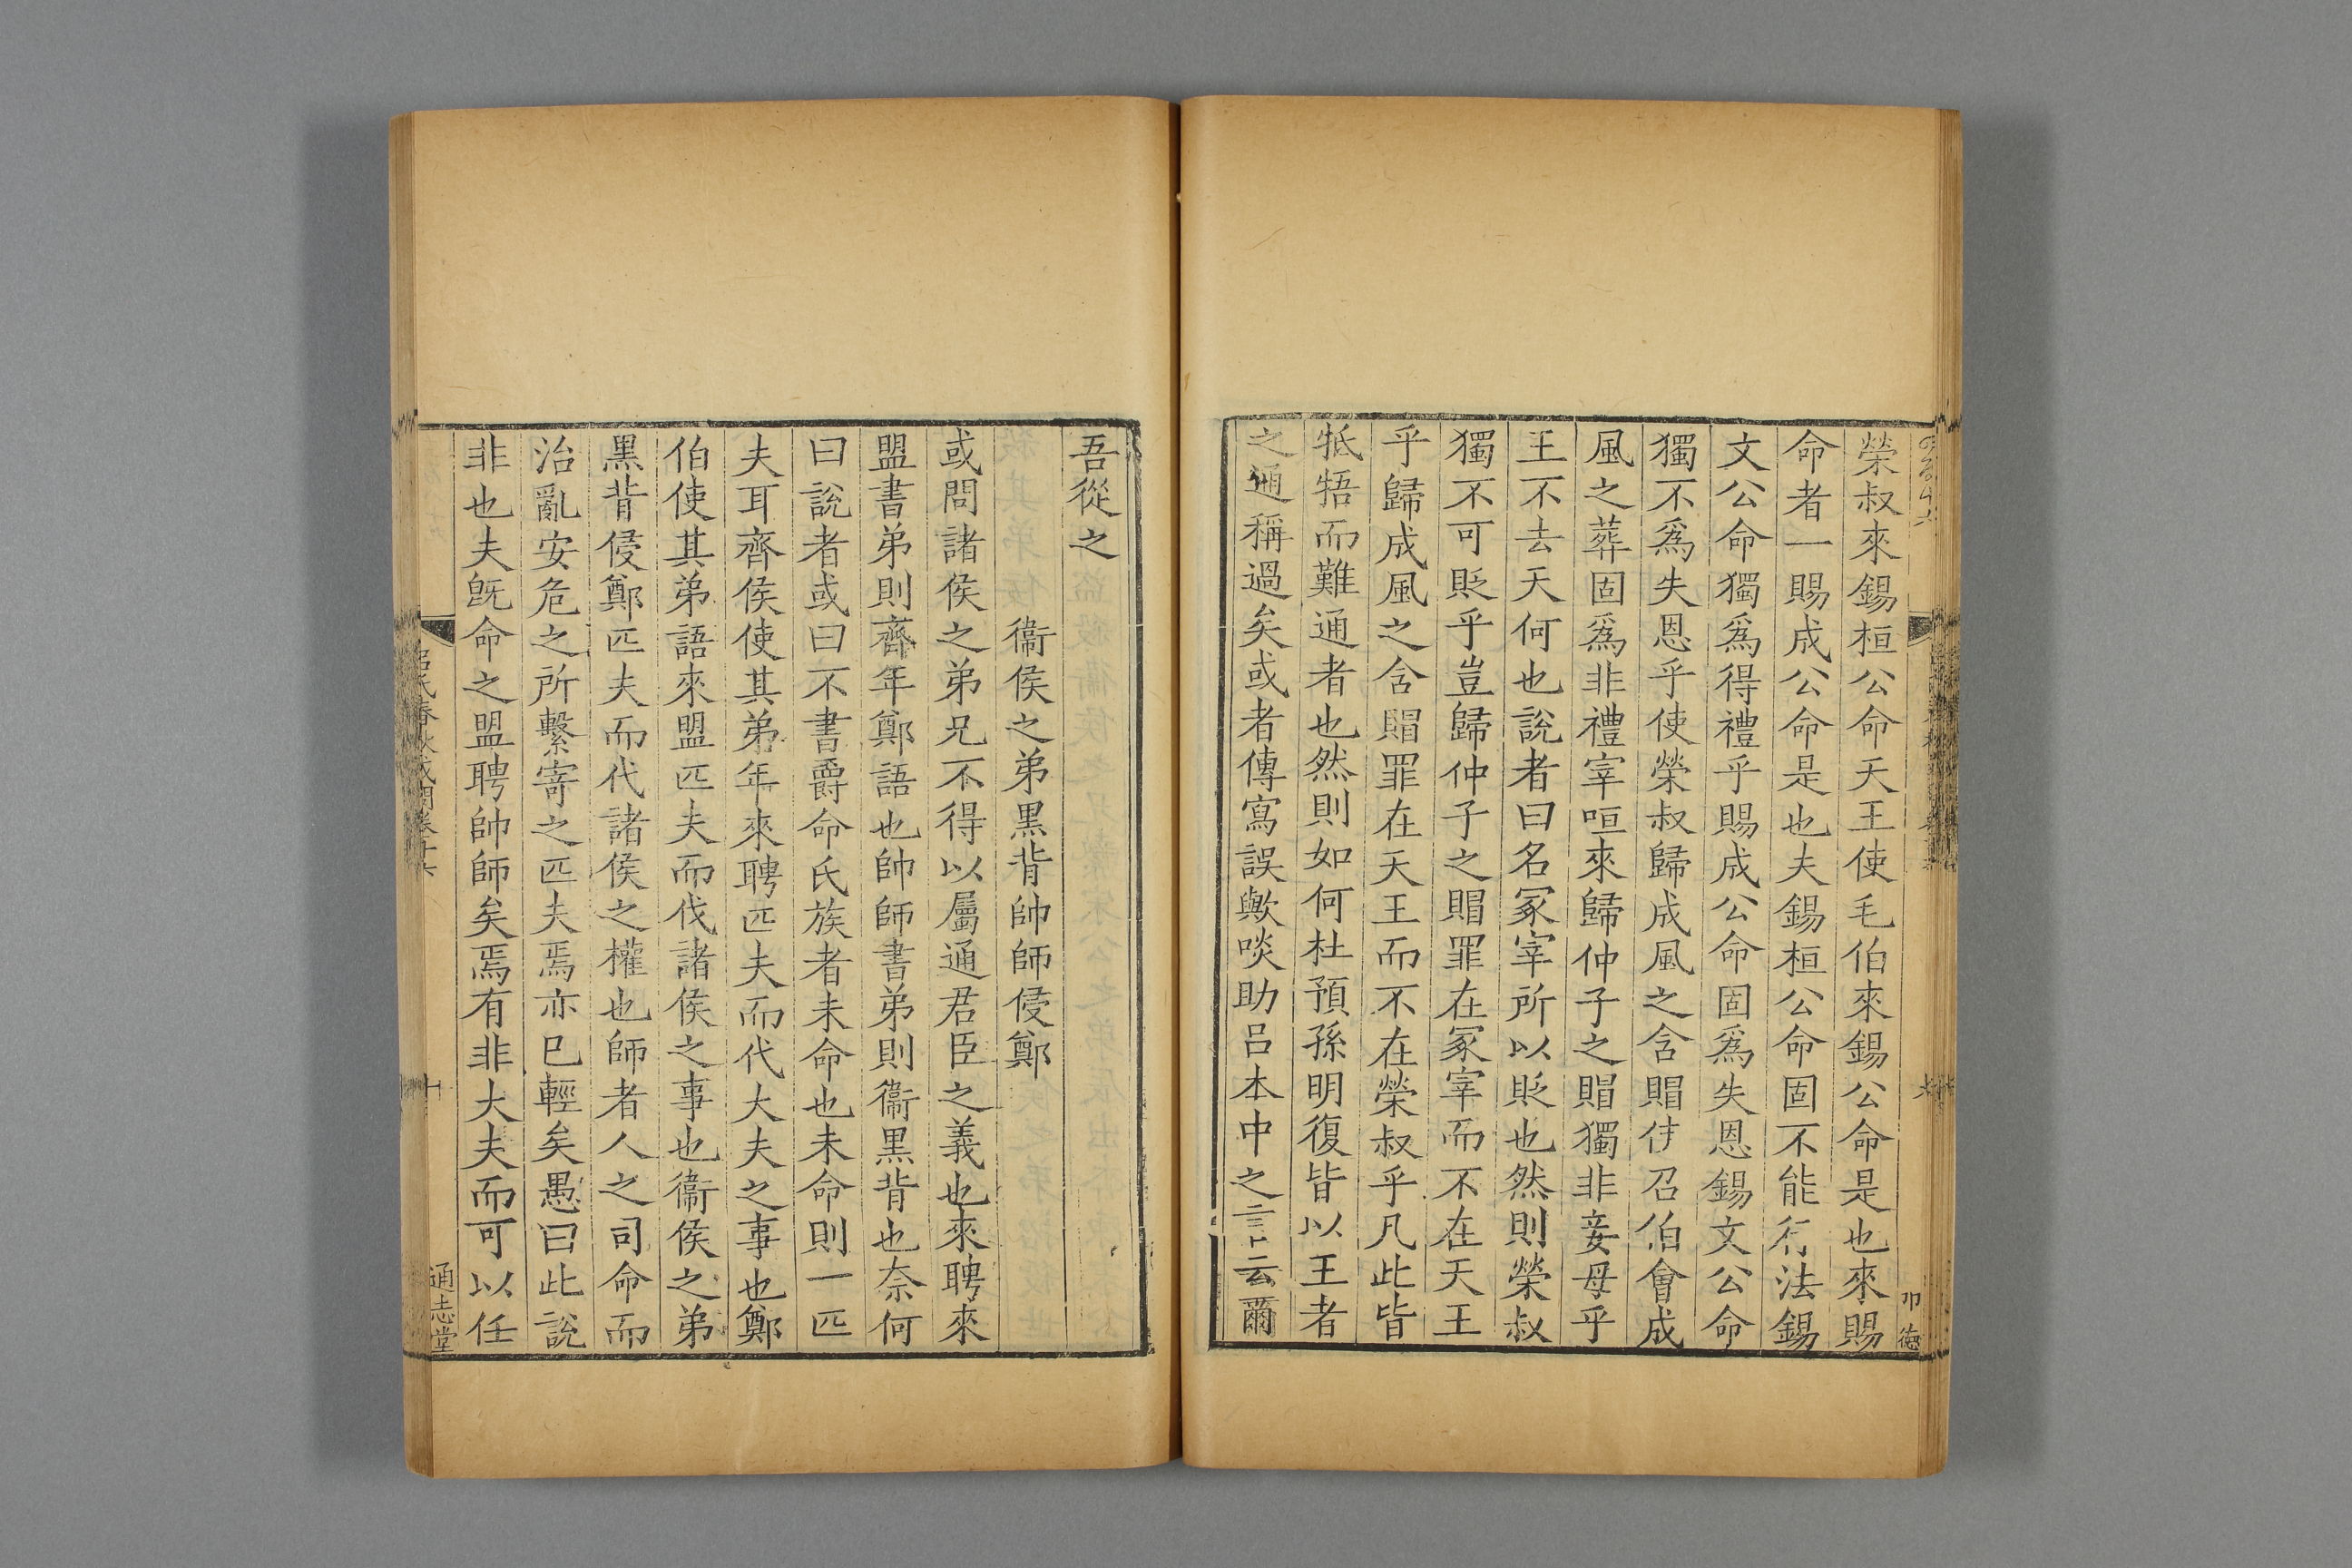 榮叔來錫桓公命天王使毛伯來錫公命是也來賜
命者一賜成公命是也夫錫桓公命固不能行法錫
文公命獨爲得禮乎賜成公命固爲失恩錫文公命
獨不爲失恩乎使榮叔歸成風之含賵使召伯會成
風之葬固爲非禮宰咺來歸仲子之賵獨非妾母乎
王不去天何也說者曰名冢宰所以貶也然則榮叔
獨不可貶乎豈歸仲子之賵罪在冢宰而不在天王
乎歸成風之含賵罪在天王而不在榮叔乎凡此皆
牴牾而難通者也然則如何杜預孫明復皆以王者
之通稱過矣或者傳寫誤歟啖助呂本中之言云爾
吾從之
衞侯之弟黑背帥師侵鄭
或問諸侯之弟兄不得以屬通君臣之義也來聘來
盟書弟則齊年鄭語也帥師書弟則衞黑背也奈何
曰說者或曰不書爵命氏族者未命也未命則一匹
夫耳齊侯使其弟年來聘匹夫而代大夫之事也鄭
伯使其弟語來盟匹夫而伐諸侯之事也衞侯之弟
黑背侵鄭匹夫而代諸侯之權也師者人之司命而
治亂安危之所繫寄之匹夫焉亦巳輕矣愚曰此說
非也夫旣命之盟聘帥師矣焉有非大夫而可以任
通志堂